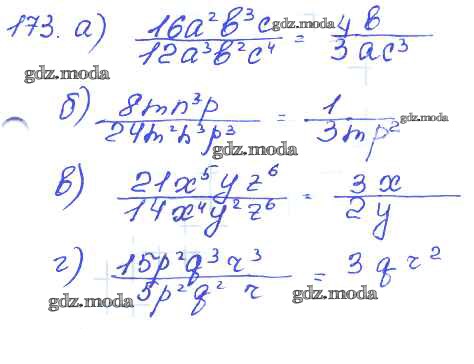 173. а) 16a²b³c / 12a³b²c⁴ = 4b / 3ac³
gdz.moda
gdz.moda
б) 8mn³p / 24m²n³p³ = 1 / 3mp²
gdz.moda
gdz.moda
в) 21x⁵yz⁶ / 14x⁴y²z⁶ = 3x / 2y
г) 15p²q³r³ / 5p²q²r = 3qr²
gdz.moda
gdz.moda